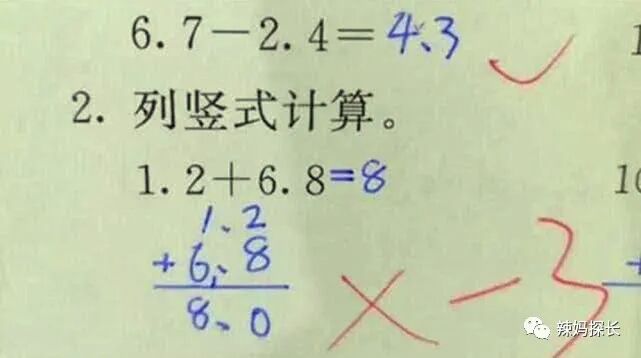 6.7－2.4＝4.3
2. 列竖式计算。
1.2＋6.8=8
1.2
+6.8
8.0
×-3
辣妈探长